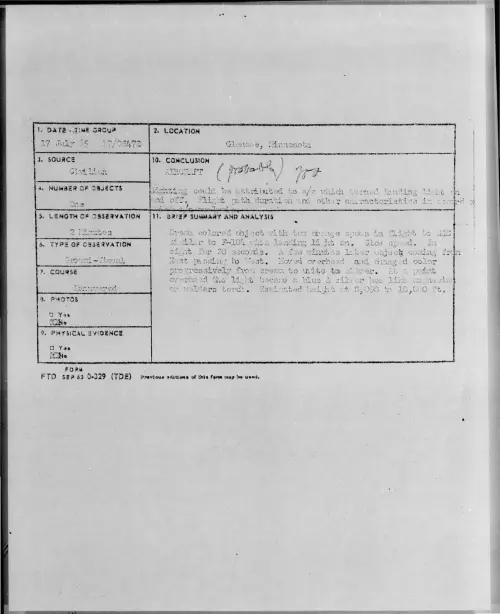 1. DATE - TIME GROUP
17 July 65 17/0247Z
2. LOCATION
Glencoe, Minnesota
3. SOURCE
Civilian
10. CONCLUSION
AIRCRAFT (probably)
4. NUMBER OF OBJECTS
One
Sighting could be attributed to a/c which turned landing light on
and off. Flight path duration and other characteristics in
5. LENGTH OF OBSERVATION
2 Minutes
11. BRIEF SUMMARY AND ANALYSIS
Cream colored object with two orange spots in flight to
similar to with landing light on. Slow speed. In
sight for 20 seconds. A few minutes later object coming from
East passing to West. Moved overhead and changed color
progressively from cream to white to silver. At a point
overhead the light became a blue & silver hue like
or welders torch. Estimated height at to 10,000 Ft.
6. TYPE OF OBSERVATION
Ground-Visual
7. COURSE
8. PHOTOS
□ Yes
No
9. PHYSICAL EVIDENCE
□ Yes
No
FORM
FTD SEP 63 0-329 (TDE) Previous editions of this form may be used.